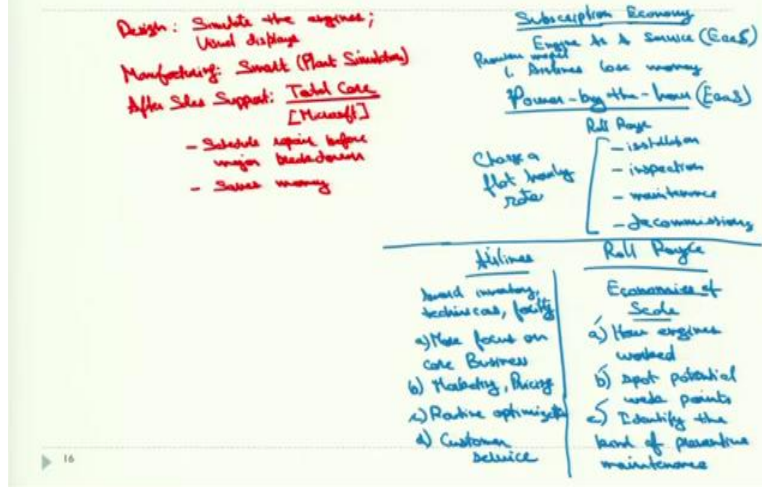 Design: Simulate the engines;
Visual displays
Manufacturing: Smart (Plant Simulation)
After Sles Support: Total Care
[Microsoft]
- Schedule repair before
major breakdowns
- Saves money
Subscription Economy
Engine As A Service (EaaS)
Previous model
1. Airlines lose money
Power-by-the-hour (EaaS)
Roll Royce
Charge a
flat hourly
rate
- installation
- inspection
- maintenance
- decommissiong
Airlines
Avoid inventory,
technicians, facility
a) More focus on
core Business
b) Marketing, Pricing
c) Routine optimizate
d) Customer
Service
Roll Royce
Economies of
Scale
a) How engines
worked
b) spot potential
weak points
c) Identify the
kind of preventive
maintenance
16